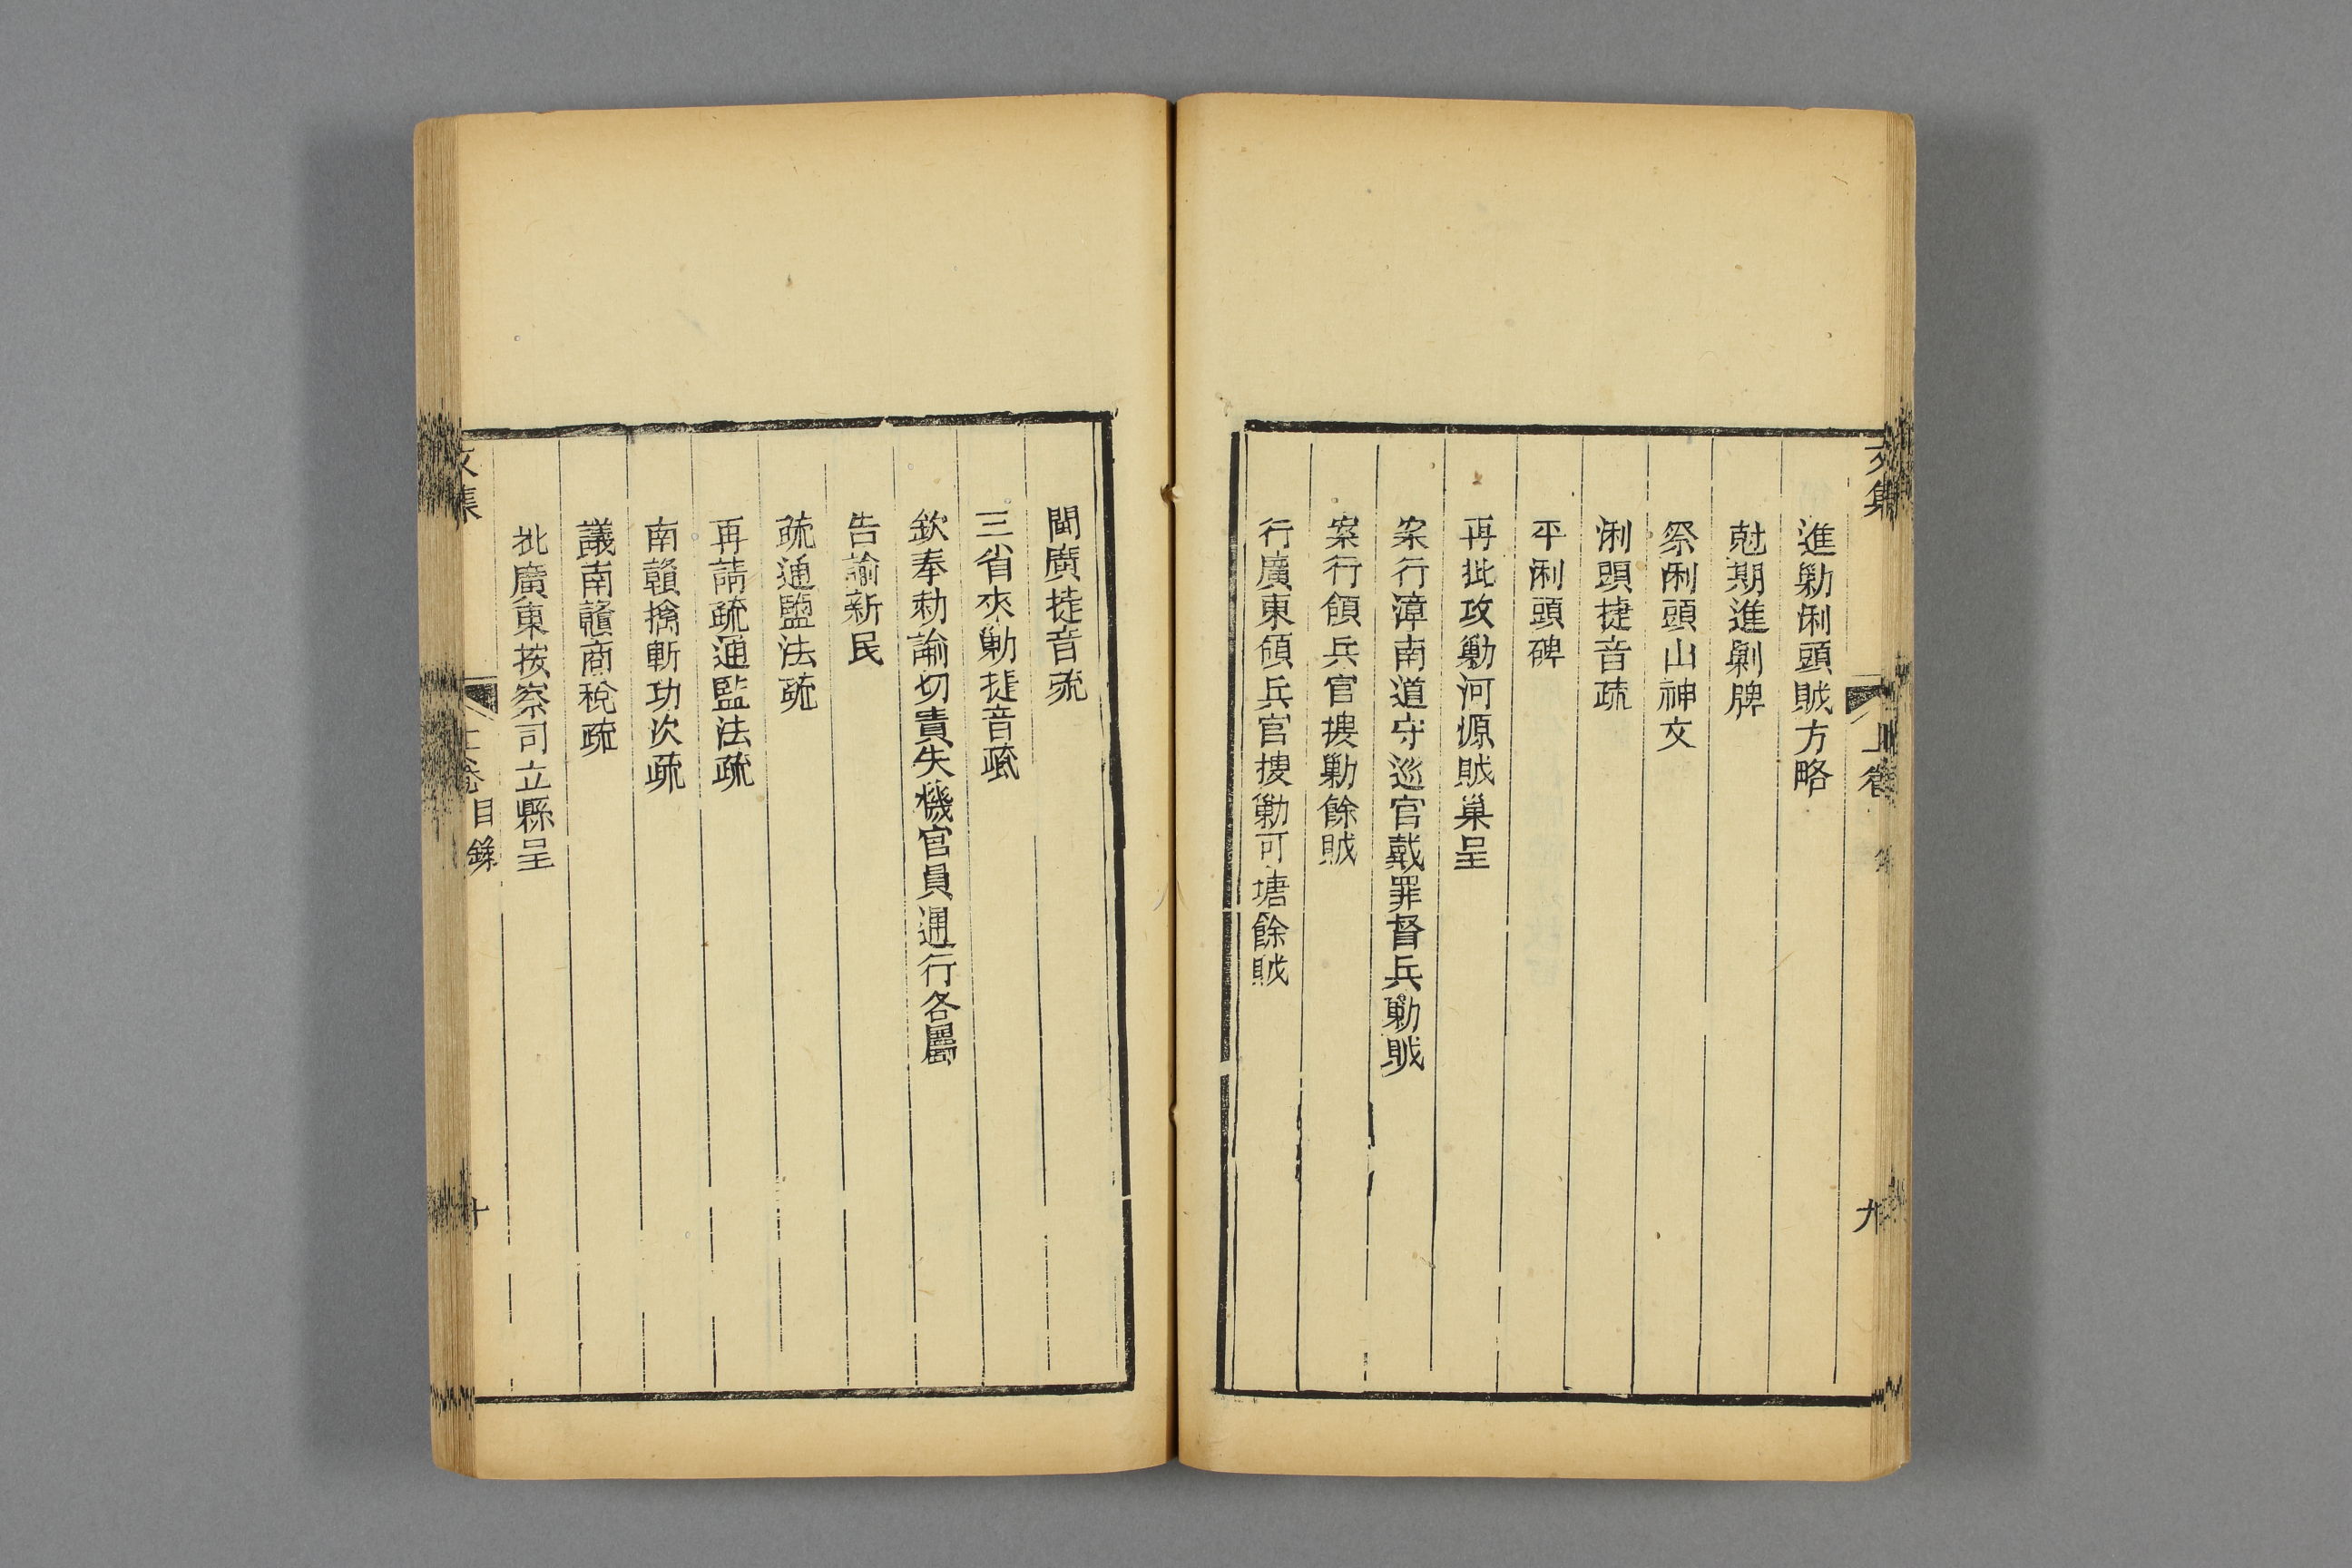 文集
上卷
九
進勦浰頭賊方略
尅期進剿牌
祭浰頭山神文
浰頭捷音疏
平浰頭碑
再批攻勦河源賊巢呈
案行漳南道守巡官戴罪督兵勦賊
案行領兵官搜勦餘賊
行廣東領兵官搜勦可塘餘賊
閩廣捷音疏
三省夾勦捷音疏
欽奉勅諭切責失機官員通行各屬
告諭新民
疏通鹽法疏
再請疏通鹽法疏
南贛擒斬功次疏
議南贛商稅疏
批廣東按察司立縣呈
文集
上卷目錄
十